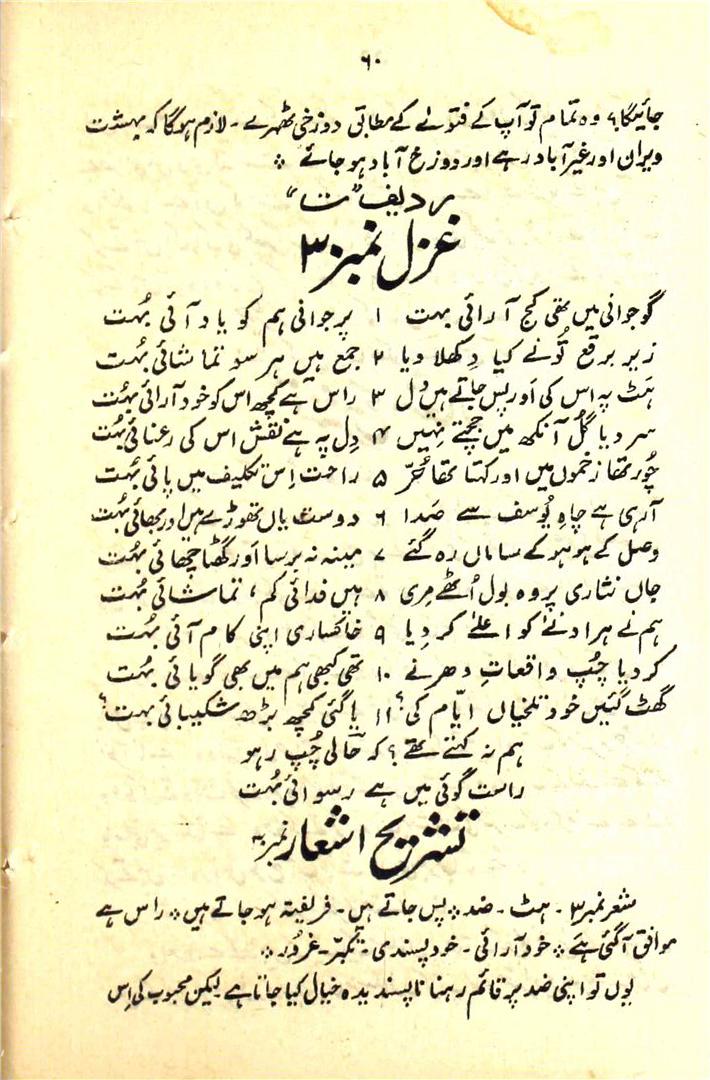 ٦٠
جائیگا؟ وہ تمام تو آپ کے فتوے کے مطابق دوزخی ٹھہرے - لازم ہوگا کہ بہشت
ویران اور غیر آباد رہے اور دوزخ آباد ہو جائے ٭
ردیف "ت"
غزل نمبر ۳
گو جوانی میں تھی کج آرائی بہت ۱ پر جوانی ہم کو یاد آئی بہُت
زیر برقع تُو نے کیا دِکھلا دیا ۲ جمع ہیں ہر سو تماشائی بہُت
ہَٹ پہ اس کی اَور پس جاتے ہیں دل ۳ راس ہے کچھ اس کو خود آرائی بہُت
سرو یا گُل آنکھ میں جچتے نہیں ۴ دِل پہ ہے نقش اس کی رعنائی بہُت
چُور تھا زخموں میں اور کہتا تھا حُرؔ ۵ راحت اِس تکلیف میں پائی بہُت
آرہی ہے چاہِ یُوسف سے صَدا ۶ دوست یاں تھوڑے ہیں اور بھائی بہُت
وصل کے ہو ہو کے ساماں رہ گئے ۷ مینہ نہ برسا اَور گھٹا چھائی بہُت
جاں نثاری پر وہ بول اُٹھے مِری ۸ ہیں فدائی کم، تماشائی بہُت
ہم نے ہر ادنےٰ کو اعلےٰ کر دِیا ۹ خاکساری اپنی کام آئی بہُت
کر دیا چُپ واقعاتِ دھر نے ۱۰ تھی کبھی ہم میں بھی گویائی بہُت
گھٹ گئیں خود تلخیاں ایّام کی؟ ۱۱ یا گئی کچھ بڑھ شکیبائی بہت؟
ہم نہ کہتے تھے؟ کہ حالیؔ چُپ رہو
راست گوئی میں ہے رسوائی بہُت
تشریح اشعار نمبر۳
شعر نمبر ۳ - ہٹ - ضد ٭ پس جاتے ہیں - فریفتہ ہو جاتے ہیں ٭ راس ہے
موافق آگئی ہے ٭ خود آرائی - خود پسندی - تکبّر - غرُور ٭
یُوں تو اپنی ضد پر قائم رہنا ناپسندیدہ خیال کیا جاتا ہے لیکن محبوب کی اِس